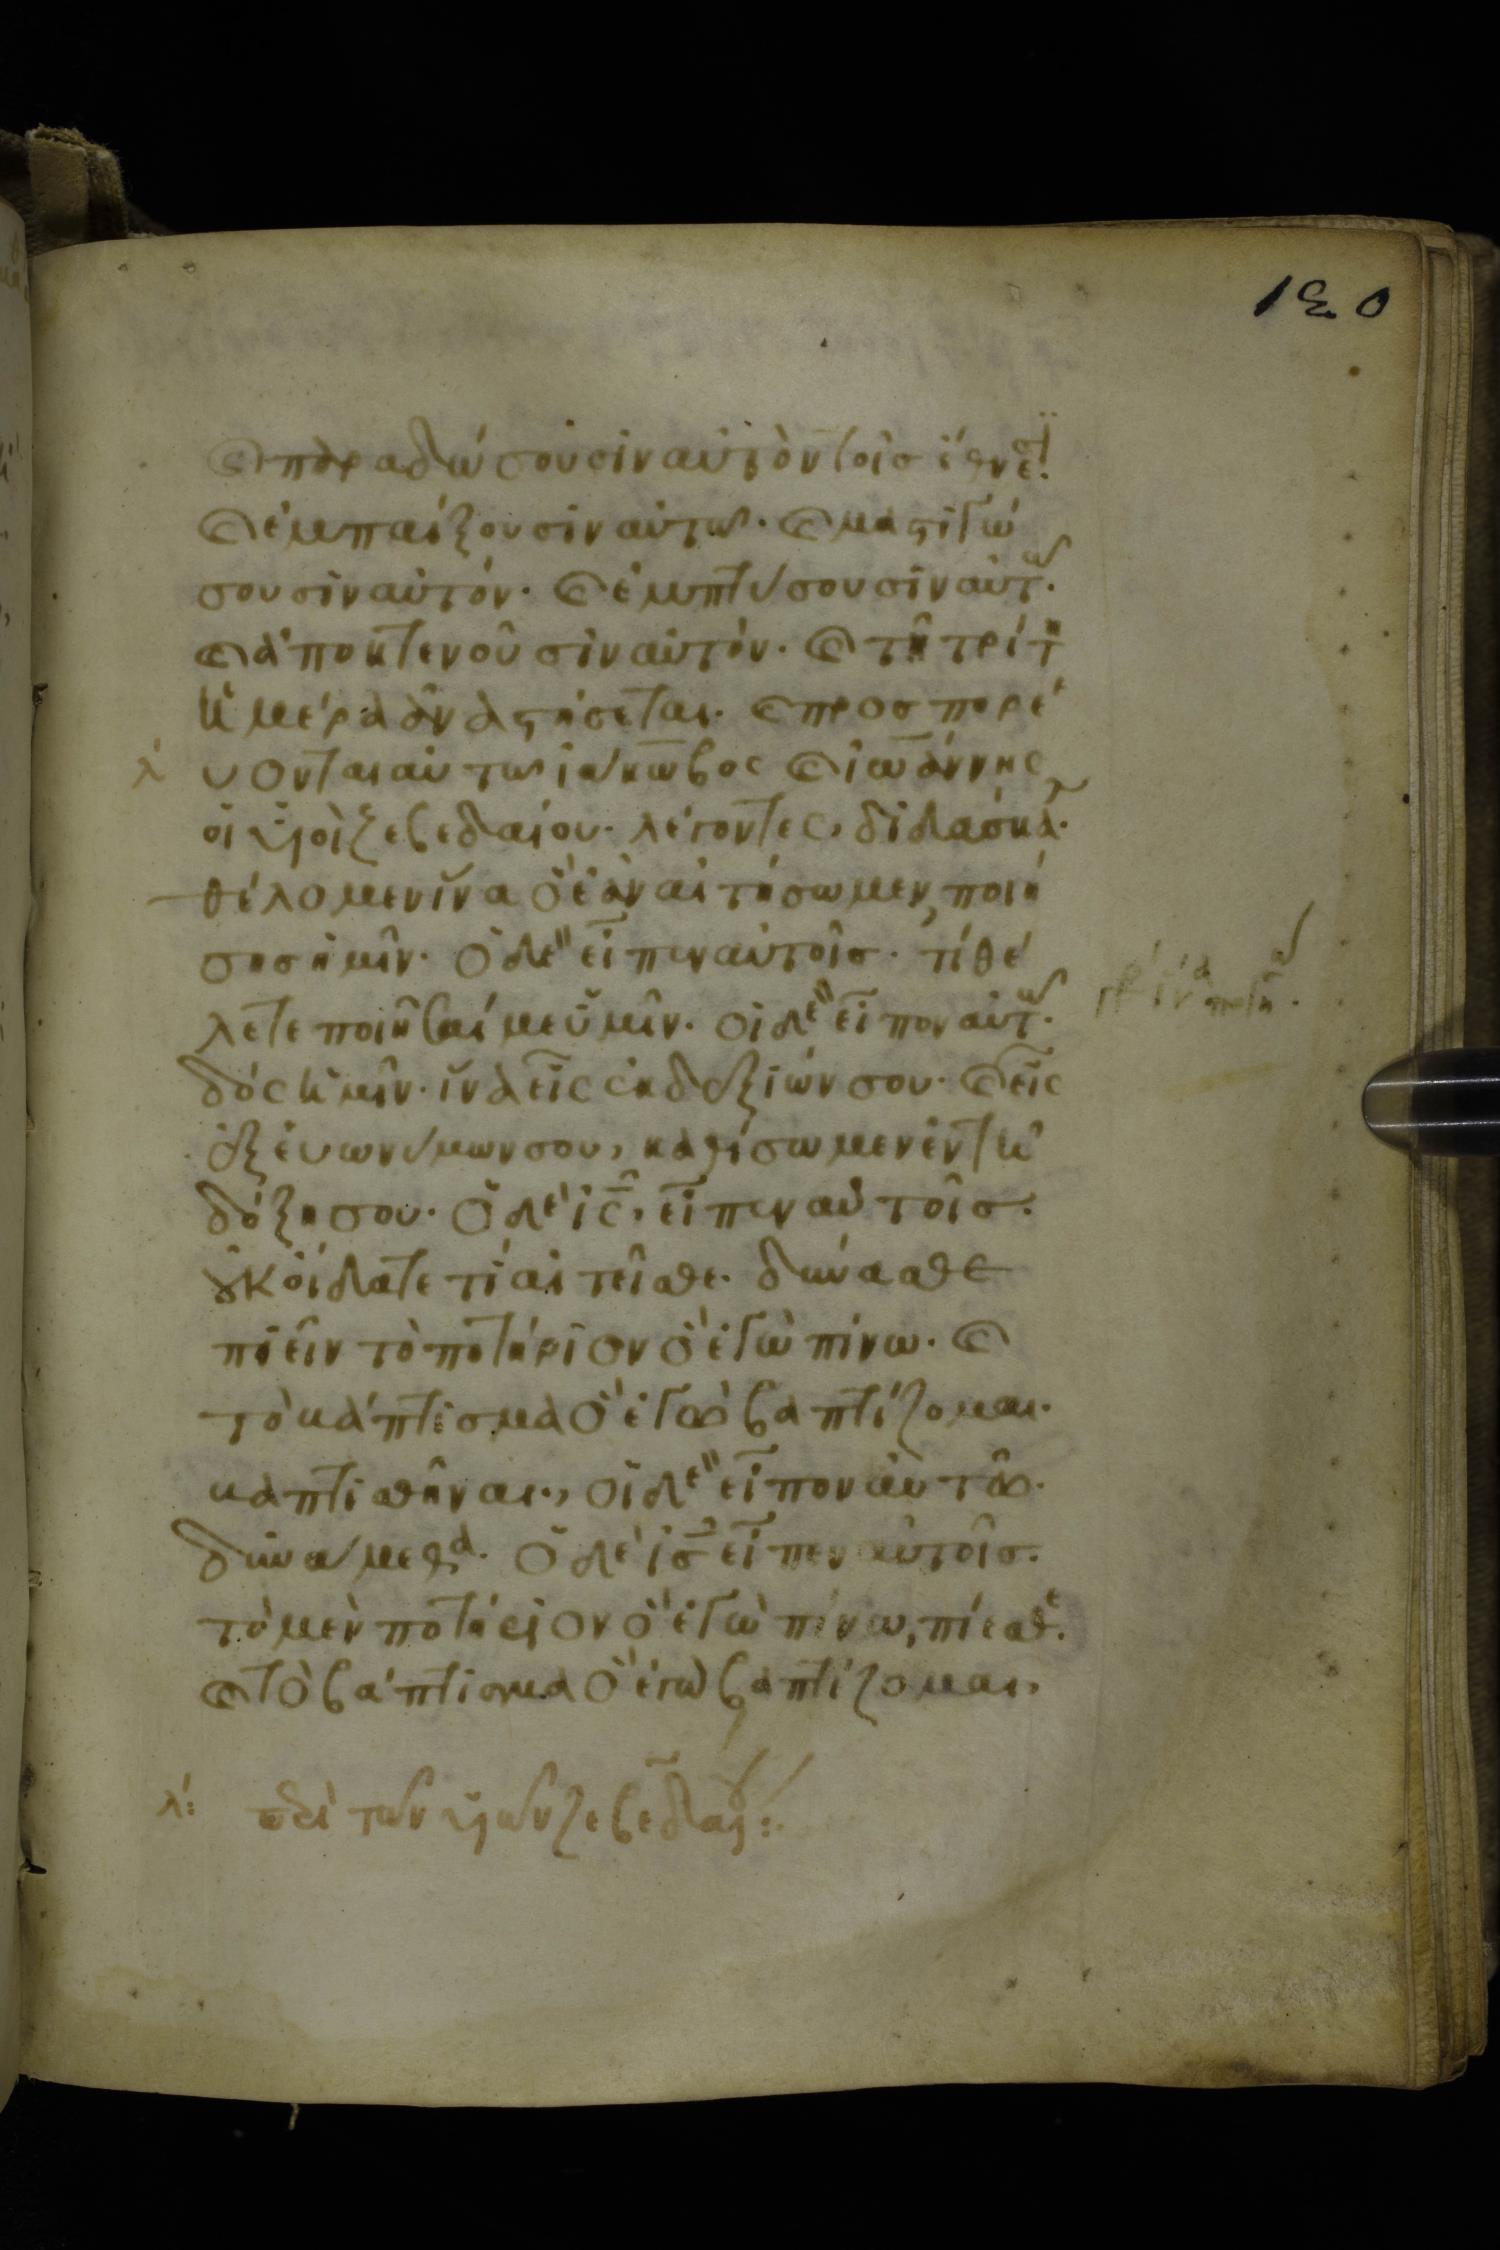 190
καὶ παραδώσουσιν αὐτὸν τοῖς ἔθνεσι.
καὶ ἐμπαίξουσιν αὐτῶ· καὶ μαστιγώ
σουσιν αὐτόν· καὶ ἐμπτύσουσιν αὐτῶ·
καὶ ἀποκτενοῦσιν αὐτόν· καὶ τῆ τρίτη
ἡμέρα ἀναστήσεται· καὶ προσπορεύ
λ υονται αὐτῶ ἰάκωβος καὶ ἰωάννης
οἱ υἱοὶ ζεβεδαίου· λέγοντες, διδάσκαλ·
θέλομεν ἵνα ὃ ἐὰν αἰτήσωμεν, ποιή
σης ἡμῖν· ὁ δὲ εἶπεν αὐτοῖς· τί θέ
λετε ποιῆσαί με ὑμῖν· οἱ δὲ εἶπον αὐτῶ·
δὸς ἡμῖν· ἵνα εἷς ἐκ δεξιών σου· καὶ εἷς
ἐξ ευωνύμων σου, καθίσωμεν ἐν τῆ
δόξη σου· ὁ δὲ ις, εἶπεν αὐτοῖς·
οὐκ οἴδατε τί αἰτεῖσθε· δύνασθε
πιεῖν τὸ ποτήριον ὃ ἐγὼ πίνω· καὶ
τὸ βάπτισμα ὃ ἐγὼ βαπτίζομαι·
βαπτισθῆναι, οἱ δὲ εἶπον αὐτῶ·
δυνάμεθα· ὁ δὲ ις εἶπεν αὐτοῖς·
τὸ μὲν ποτήριον ὃ ἐγὼ πίνω, πίεσθε·
καὶ τὸ βάπτισμα ὃ ἐγὼ βαπτίζομαι,
λ: περὶ τῶν υἱῶν ζεβεδαίου: